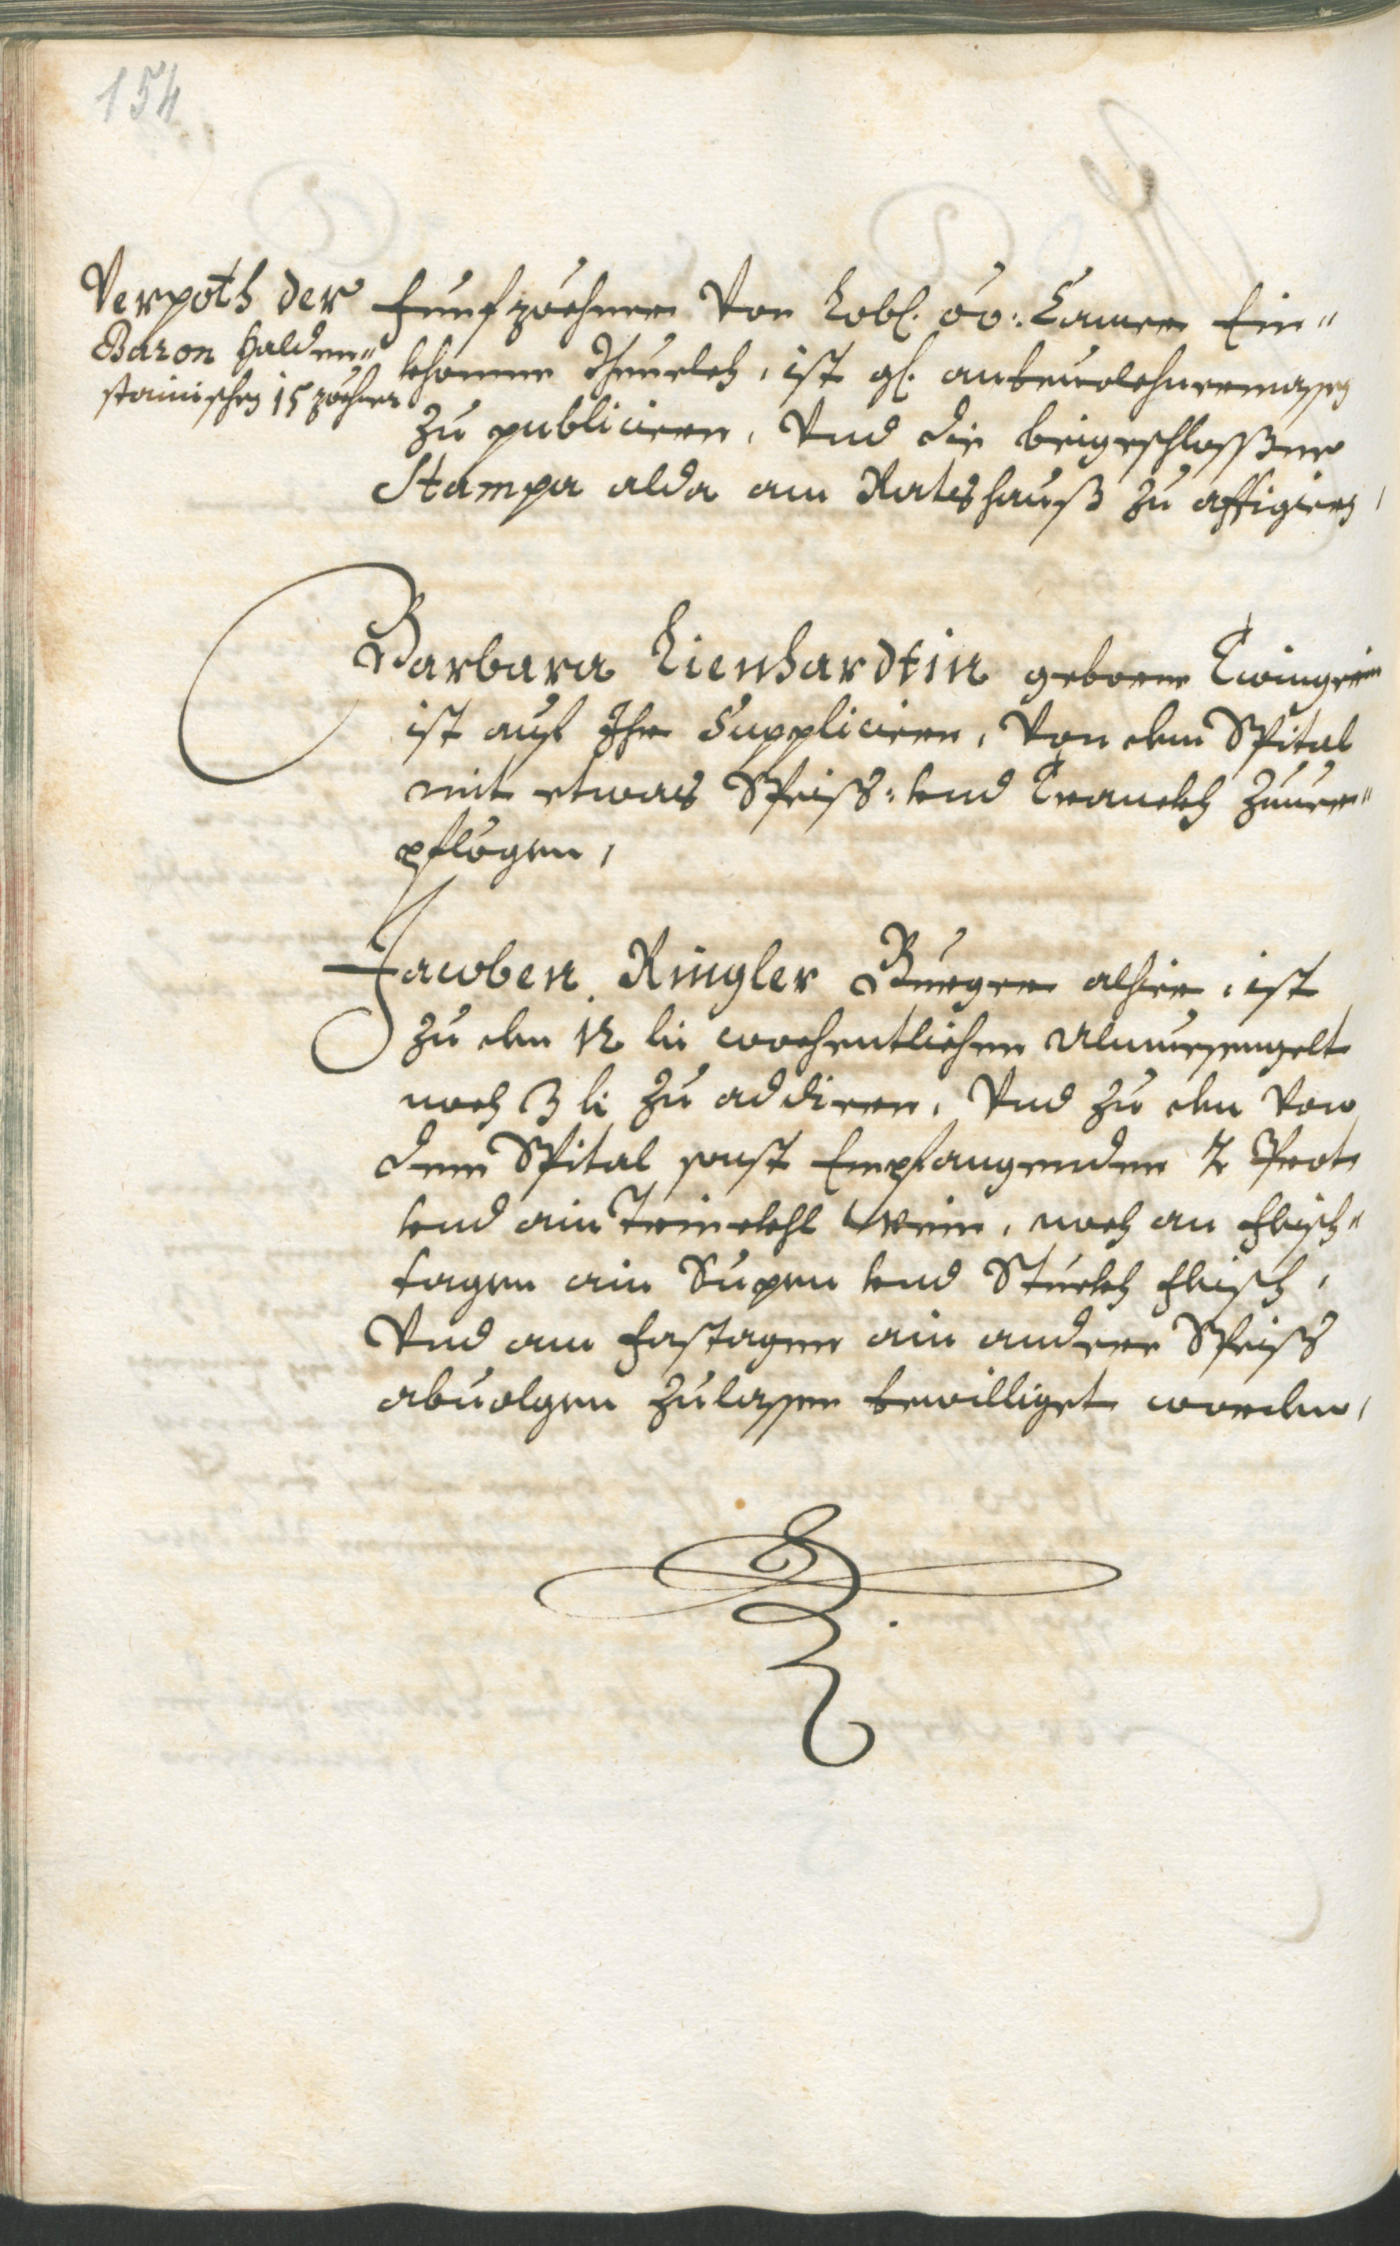 154
Verpoth der
Baron Halden=
stainischen 15 zöchner
Fünfzöchner Von Lobl. öö: Camer Ein=
khomne Theurkh, ist gl. anbeuolchnermassen
zu publicieren, Vnd die beigeschlossne
Stampa alda am Ratshauß zu affigieren,
Barbara Lienhardtin geborne Twingerin
ist auf Ihr Supplicieren, Von dem Spital
mit etwas Speiss: vnd Tranckh zuuer=
pflögen,
Jacoben Ringler Burger alhier, ist
zu den 12 kr wochentlichen Almuesengelt
noch 3 kr zu addiren, Vnd zu den Von
dem Spital sonst Empfangenden 2 Prot
vnd ain Trinckhl Wein, noch an Fleisch=
tagen ain Supen vnd Stuckh Fleisch,
Vnd am Fastagen ain andere Speiss
abuolgen zulassen bewilliget worden,